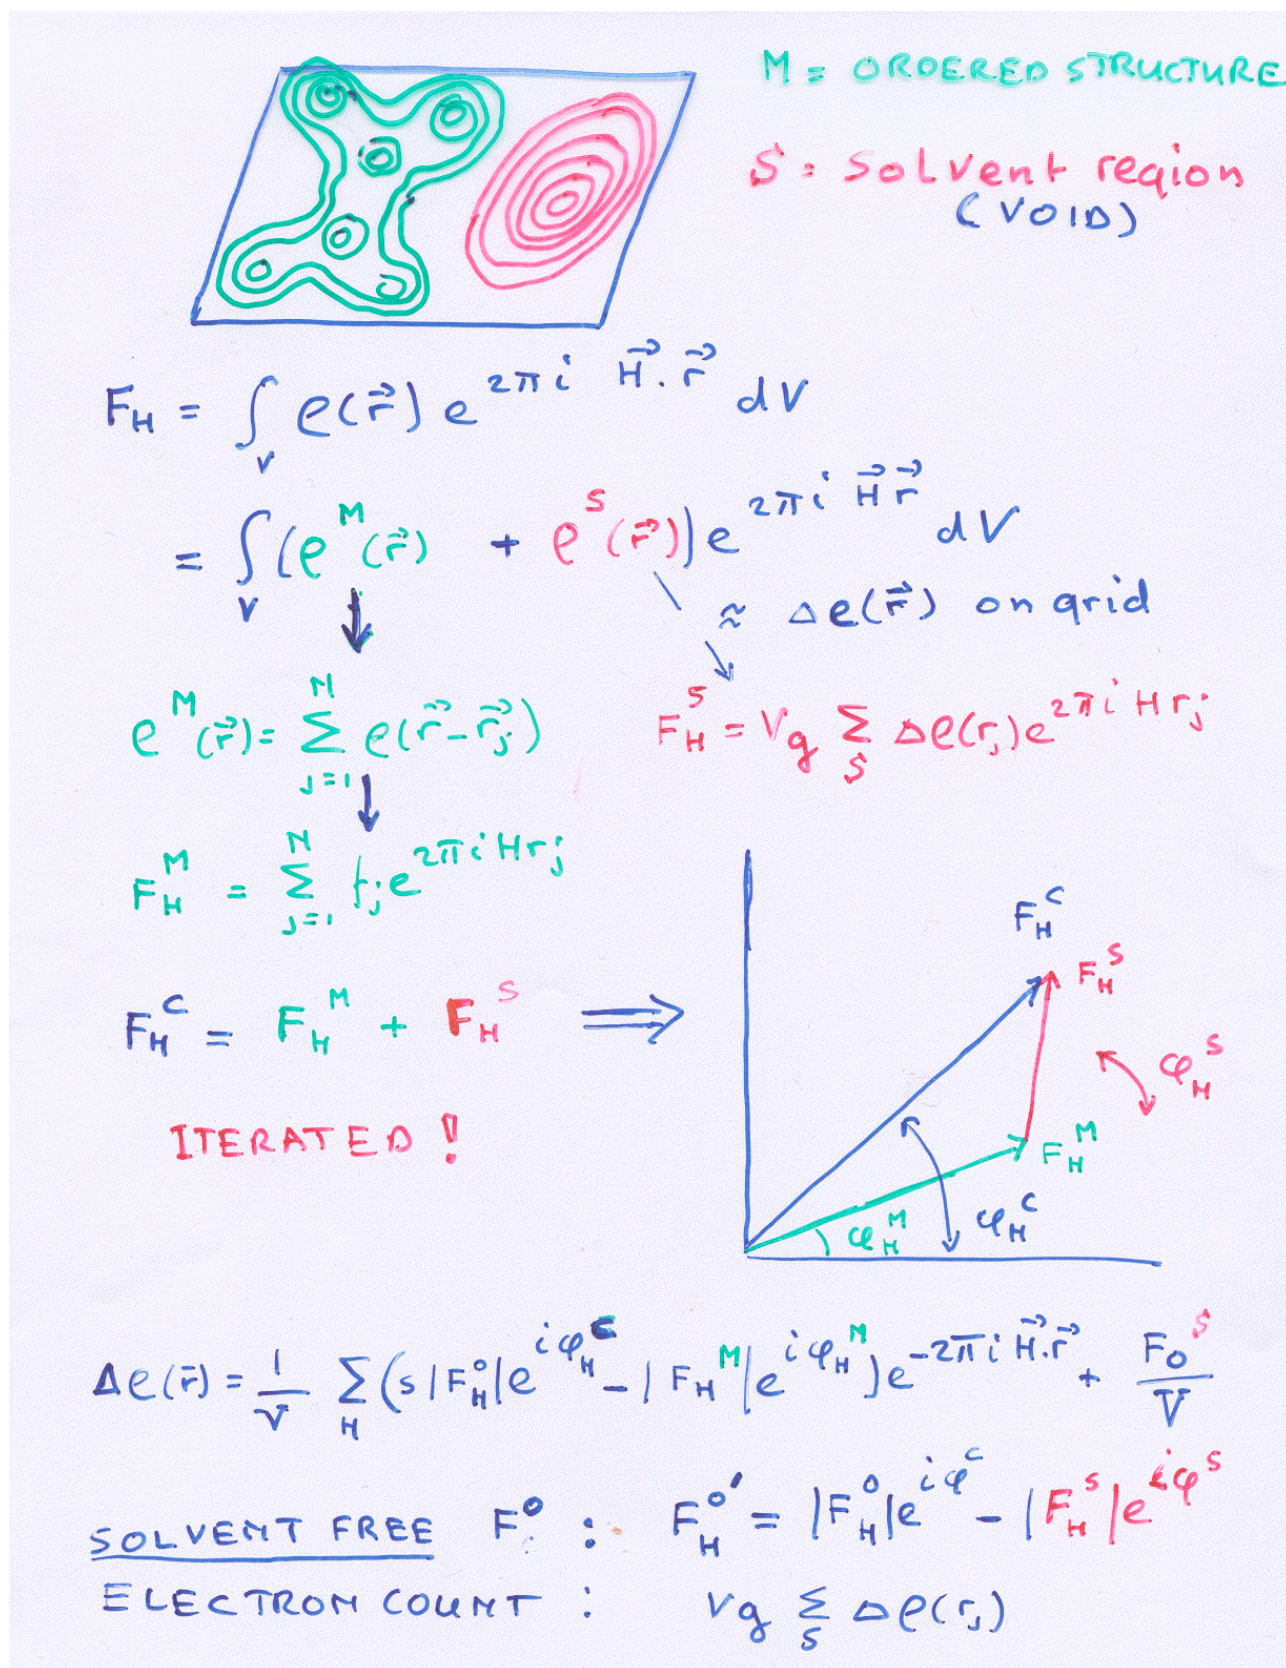 M = ORDERED STRUCTURE
S = Solvent region
(VOID)
F_H = ∫_V ρ(r⃗) e^{2πi H⃗.r⃗} dV
= ∫_V (ρ^M(r⃗) + ρ^S(r⃗)) e^{2πi H⃗ r⃗} dV
≈ Δρ(r⃗) on grid
ρ^M(r⃗) = Σ_{j=1}^N ρ(r⃗-r⃗_j)
F_H^S = V_g Σ_S Δρ(r_j) e^{2πi H r_j}
F_H^M = Σ_{j=1}^N f_j e^{2πi H r_j}
F_H^C = F_H^M + F_H^S ⟹
ITERATED !
F_H^C
F_H^S
φ_H^S
F_H^M
φ_H^M
φ_H^C
Δρ(r̄) = 1/V Σ_H (s|F_H^o| e^{iφ_H^C} - |F_H^M| e^{iφ_H^M}) e^{-2πi H⃗.r⃗} + F_0^S/V
SOLVENT FREE F^o : F_H^{o'} = |F_H^o| e^{iφ^C} - |F_H^S| e^{iφ^S}
ELECTRON COUNT : V_g Σ_S Δρ(r_j)